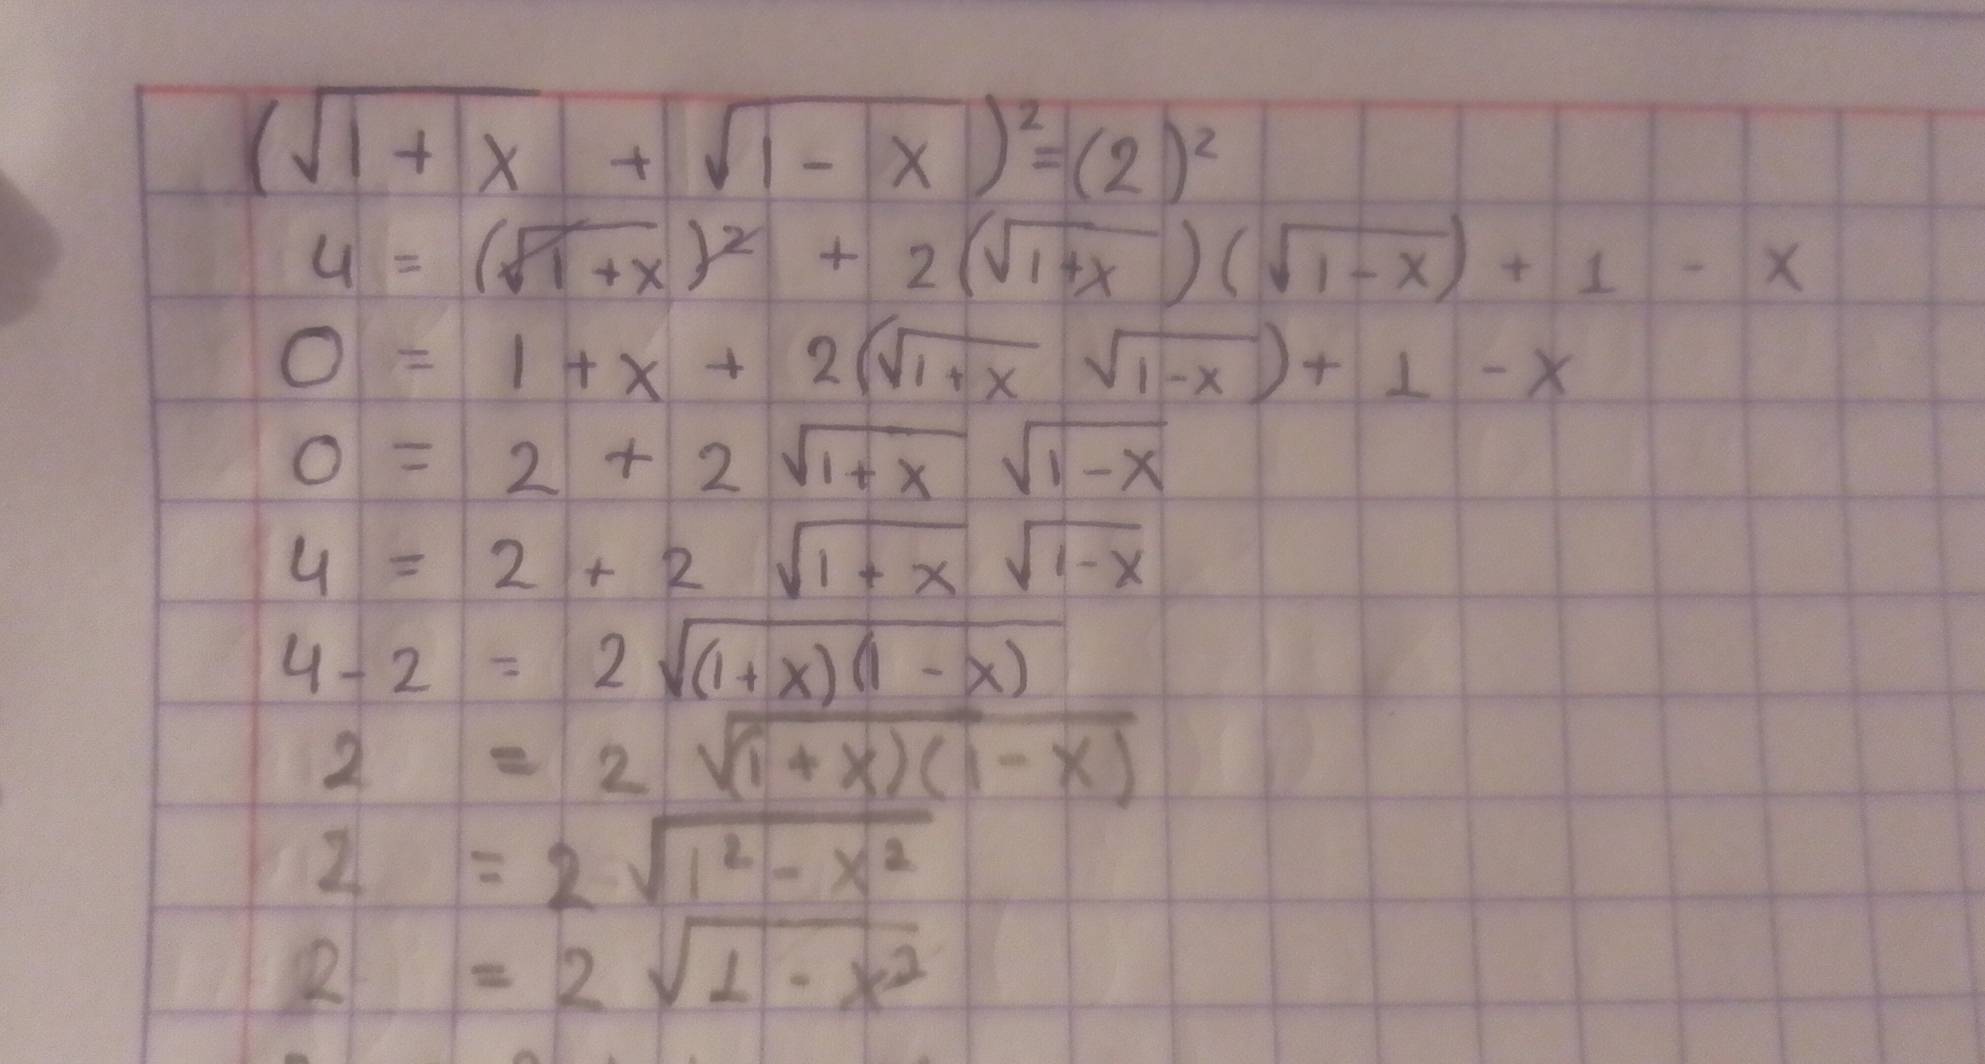 (√1+x + √1-x)² = (2)²
4 = (√1+x)² + 2(√1+x)(√1-x) + 1 - x
0 = 1 + x + 2(√1+x √1-x) + 1 - x
0 = 2 + 2 √1+x √1-x
4 = 2 + 2 √1+x √1-x
4-2 = 2 √(1+x)(1-x)
2 = 2 √(1+x)(1-x)
2 = 2 √1²-x²
2 = 2 √1-x²